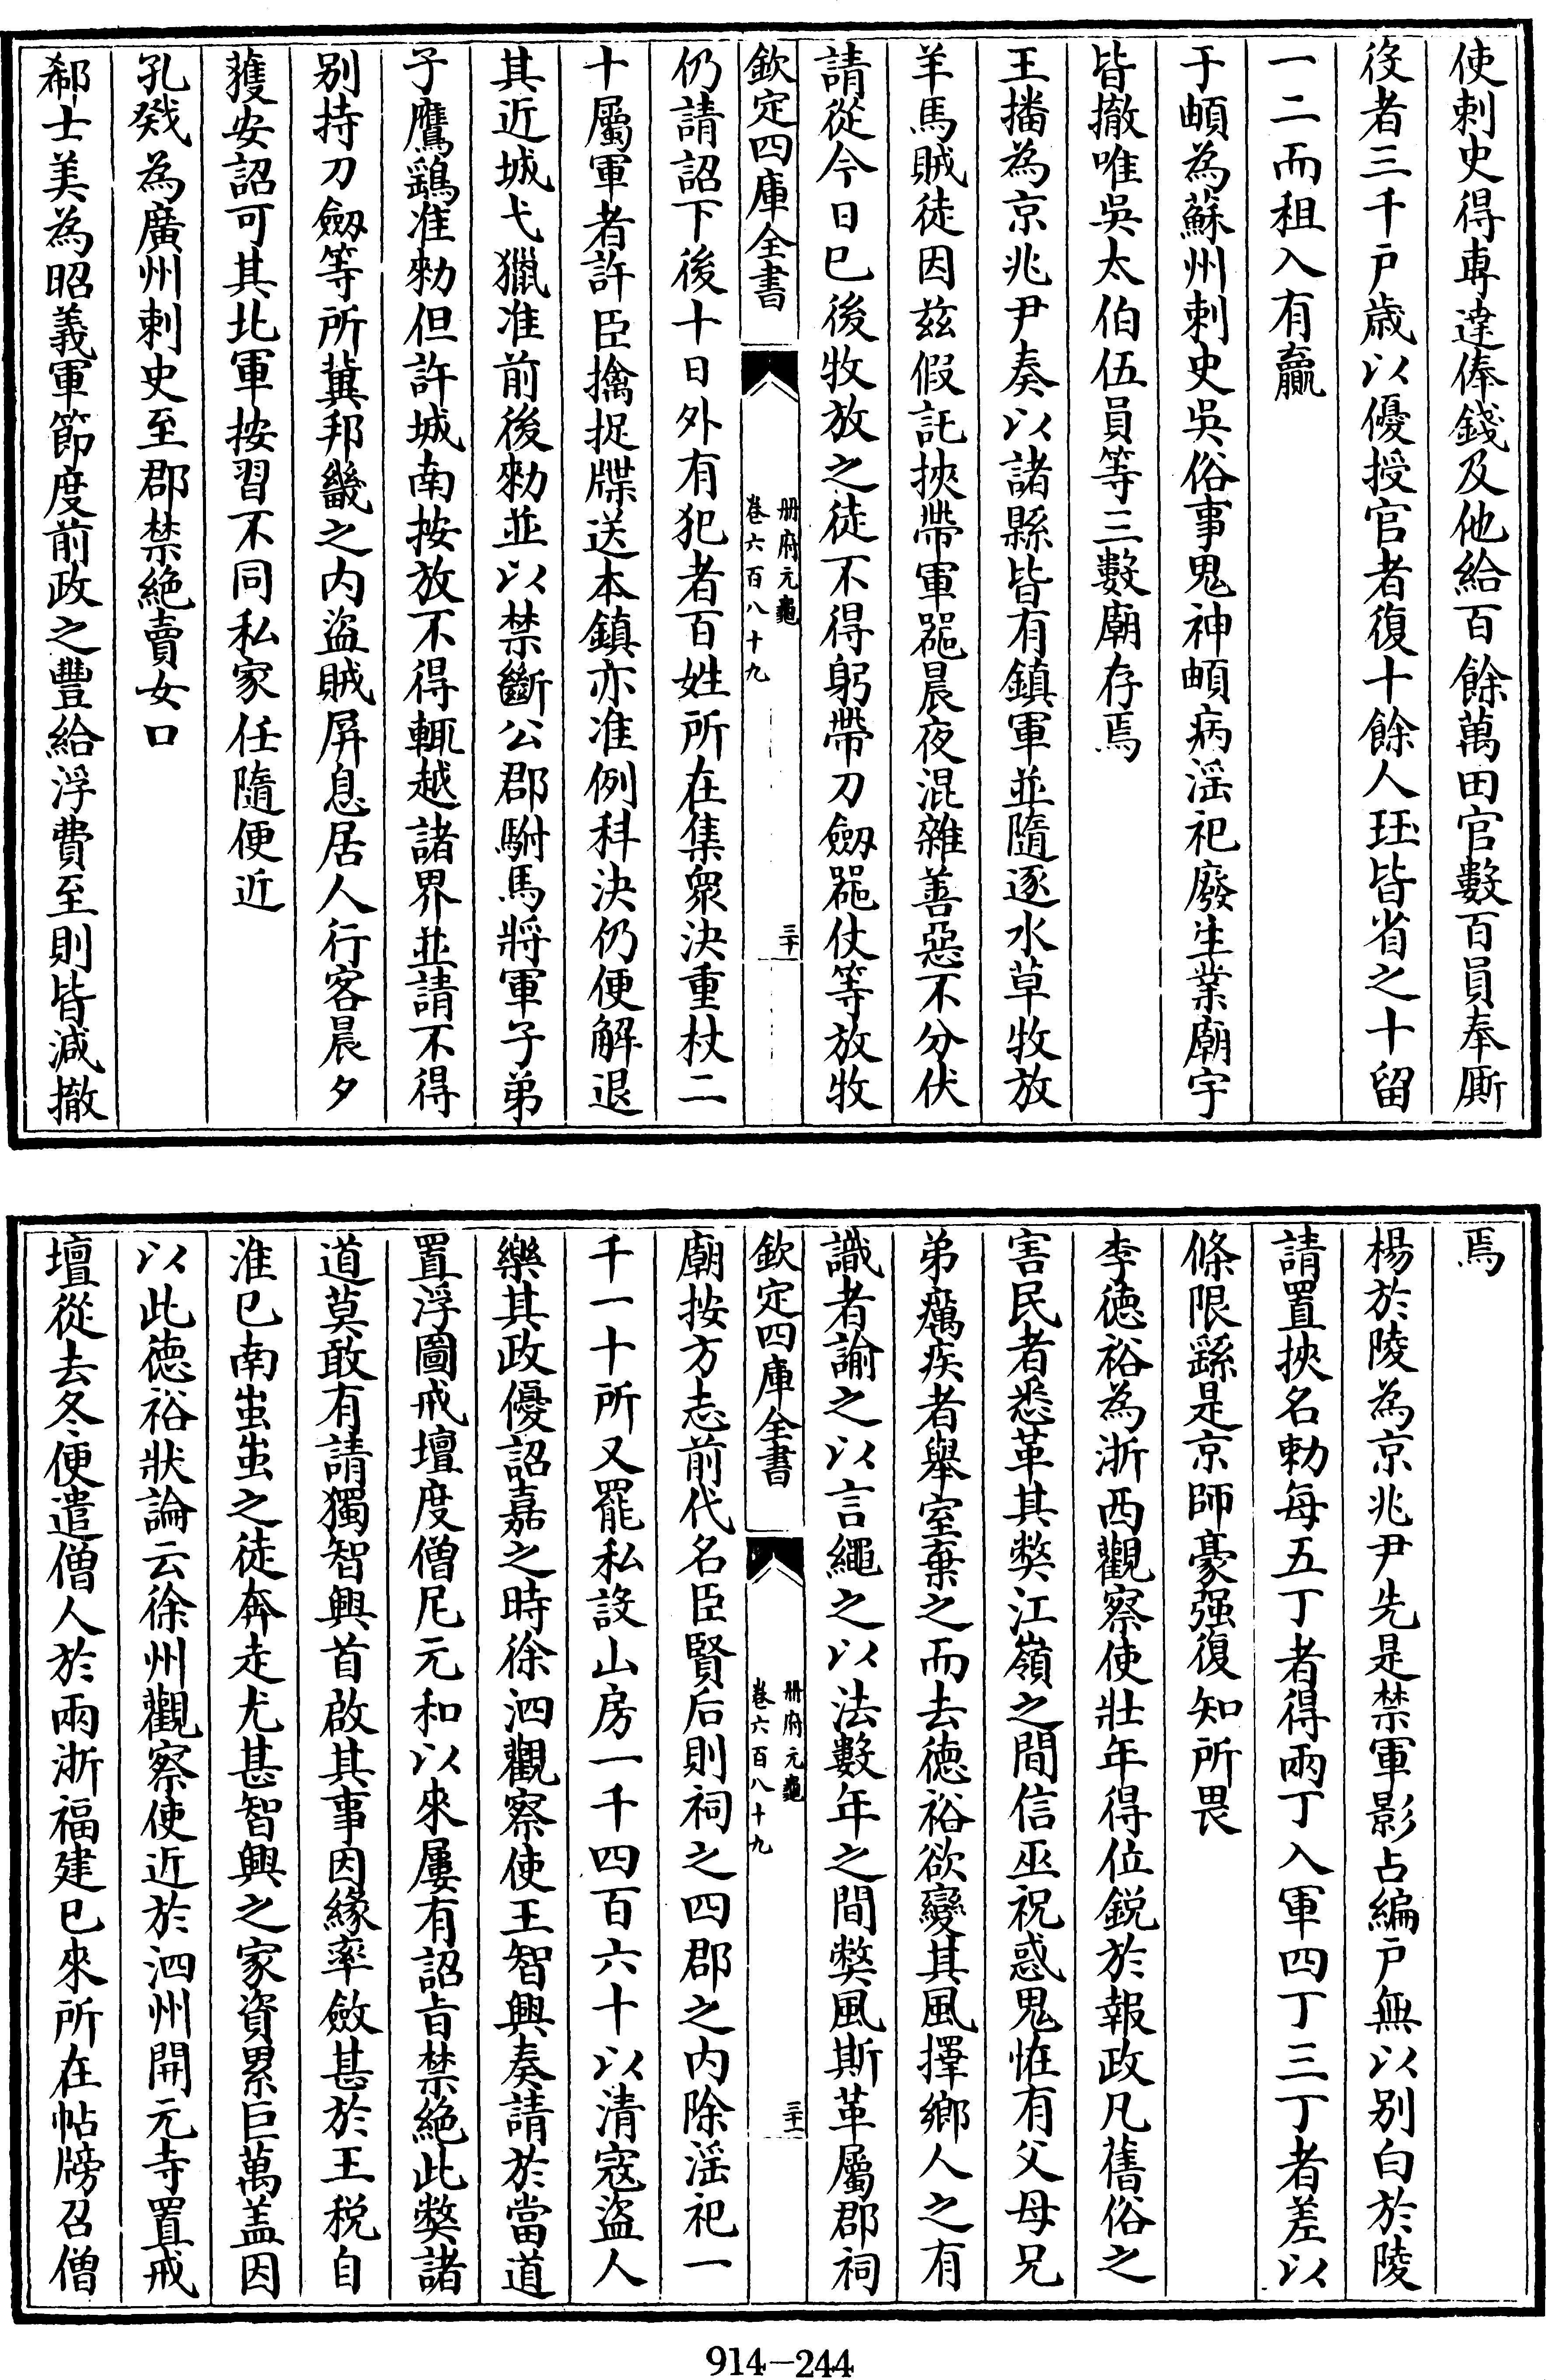 使刺史得専達俸錢及他給百餘萬田官數百員奉厮
役者三千戶歲以優授官者復十餘人珏皆省之十留
一二而租入有贏
于頔為蘇州刺史吳俗事鬼神頔病滛祀廢生業廟宇
皆撤唯吳太伯伍員等三數廟存焉
王播為京兆尹奏以諸縣皆有鎮軍並隨逐水草牧放
羊馬賊徒因兹假託挾帶軍器晨夜混雜善惡不分伏
請從今日已後牧放之徒不得躬帶刀劒器仗等放牧
欽定四庫全書
册府元龜
卷六百八十九
三十
仍請詔下後十日外有犯者百姓所在集衆決重杖二
十屬軍者許臣擒捉牒送本鎮亦准例科決仍便解退
其近城弋獵准前後勑並以禁斷公郡駙馬將軍子弟
子鷹鷂准勑但許城南按放不得輒越諸界並請不得
别持刀劒等所冀邦畿之内盜賊屏息居人行客晨夕
獲安詔可其北軍按習不同私家任隨便近
孔戣為廣州刺史至郡禁絶賣女口
郗士美為昭義軍節度前政之豐給浮費至則皆減撤
焉
楊於陵為京兆尹先是禁軍影占編戶無以别白於陵
請置挾名勑每五丁者得兩丁入軍四丁三丁者差以
條限繇是京師豪强復知所畏
李徳裕為浙西觀察使壯年得位鋭於報政凡舊俗之
害民者悉革其獘江嶺之間信巫祝惑鬼恠有父母兄
弟癘疾者舉室棄之而去徳裕欲變其風擇鄉人之有
識者諭之以言繩之以法數年之間獘風斯革屬郡祠
欽定四庫全書
册府元龜
卷六百八十九
三十一
廟按方志前代名臣賢后則祠之四郡之内除滛祀一
千一十所又罷私設山房一千四百六十以清寇盜人
樂其政優詔嘉之時徐泗觀察使王智興奏請於當道
置浮圖戒壇度僧尼元和以來屢有詔旨禁絶此獘諸
道莫敢有請獨智興首啟其事因緣率斂甚於王税自
淮巳南蚩蚩之徒奔走尤甚智興之家資累巨萬盖因
以此徳裕狀論云徐州觀察使近於泗州開元寺置戒
壇從去冬便遣僧人於兩浙福建已來所在帖牓召僧
914-244